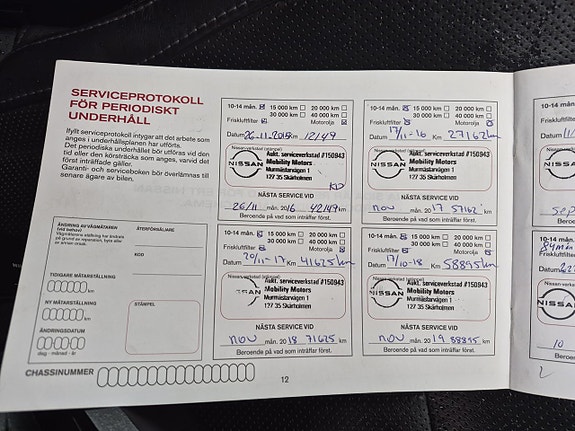 SERVICEPROTOKOLL
FÖR PERIODISKT
UNDERHÅLL
Ifyllt serviceprotokoll intygar att det arbete som
anges i underhållsplanen har utförts.
Det periodiska underhållet bör utföras vid den
tid eller den körsträcka som anges, varvid det
först inträffade gäller.
Garanti- och serviceboken bör överlämnas till
senare ägare av bilen.
10-14 mån. 15 000 km 20 000 km
30 000 km 40 000 km
Friskluftfilter Motorolja
Datum 26-11-2015 Km 12149
Nissan-verkstad (stämpel)
Aukt. serviceverkstad #150943
Mobility Motors
Murmästarvägen 1
127 35 Skärholmen
NISSAN
NÄSTA SERVICE VID
26/11 mån. 2016 42149 km
Beroende på vad som inträffar först.
10-14 mån. 15 000 km 20 000 km
30 000 km 40 000 km
Friskluftfilter Motorolja
Datum 17/11-16 Km 27162 km
Nissan-verkstad (stämpel)
Aukt. serviceverkstad #150943
Mobility Motors
Murmästarvägen 1
127 35 Skärholmen
NISSAN
NÄSTA SERVICE VID
nov mån. 2017 57162 km
Beroende på vad som inträffar först.
ÄNDRING AV VÄGMÄTAREN
(vid behov)
ÅTERFÖRSÄLJARE
KOD
TIDIGARE MÄTARSTÄLLNING
km
NY MÄTARSTÄLLNING
km
STÄMPEL
ÄNDRINGSDATUM
dag - månad - år
10-14 mån. 15 000 km 20 000 km
30 000 km 40 000 km
Friskluftfilter Motorolja
Datum 20/11-17 Km 41625 km
Nissan-verkstad (stämpel)
Aukt. serviceverkstad #150943
Mobility Motors
Murmästarvägen 1
127 35 Skärholmen
NÄSTA SERVICE VID
nov mån. 2018 71625 km
Beroende på vad som inträffar först.
10-14 mån. 15 000 km 20 000 km
30 000 km 40 000 km
Friskluftfilter Motorolja
Datum 17/10-18 Km 58895 km
Nissan-verkstad (stämpel)
Aukt. serviceverkstad #150943
Mobility Motors
Murmästarvägen 1
127 35 Skärholmen
NÄSTA SERVICE VID
nov mån. 2019 88895 km
Beroende på vad som inträffar först.
CHASSINUMMER
12
10-14 mån.
Friskluftfilter
Datum
NISSAN
Sep
Beroende
84 mån
Friskluftfilter
Datum
Nissan-verkstad
NISSAN
10
Beroende